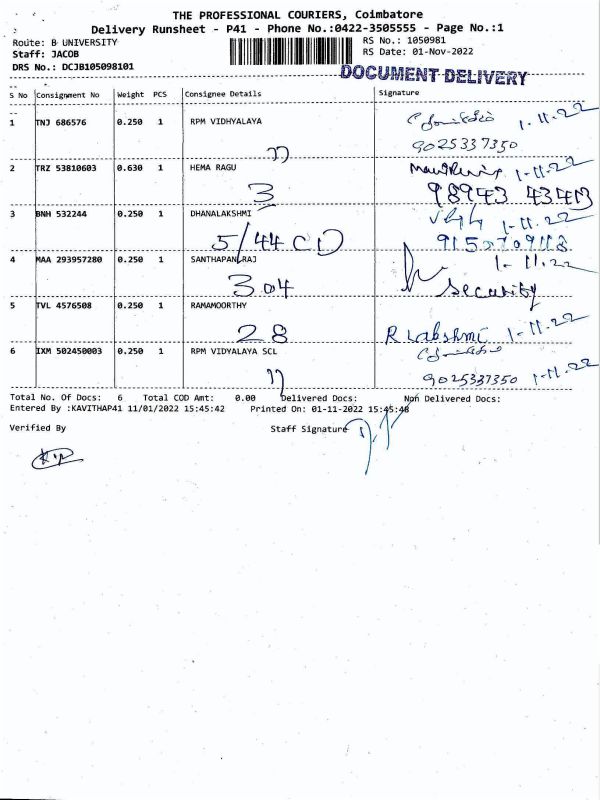 THE PROFESSIONAL COURIERS, Coimbatore
Delivery Runsheet - P41 - Phone No.:0422-3505555 - Page No.:1
Route: B UNIVERSITY RS No.: 1050981
Staff: JACOB RS Date: 01-Nov-2022
DRS No.: DCJB105098101
DOCUMENT DELIVERY
S No Consignment No Weight PCS Consignee Details Signature
1 TNJ 686576 0.250 1 RPM VIDHYALAYA 1-11-22
9025337350
2 TRZ 53810603 0.630 1 HEMA RAGU 1-11-22
3 98943 43413
3 BNH 532244 0.250 1 DHANALAKSHMI 1-11-22
5/44 CD
4 MAA 293957280 0.250 1 SANTHAPAN RAJ 1-11.22
304 Security
5 TVL 4576508 0.250 1 RAMAMOORTHY
28 R Lakshmi 1-11-22
6 IXM 502450003 0.250 1 RPM VIDYALAYA SCL
9025337350 1-11-22
Total No. Of Docs: 6 Total COD Amt: 0.00 Delivered Docs: Non Delivered Docs:
Entered By :KAVITHAP41 11/01/2022 15:45:42 Printed On: 01-11-2022 15:45:48
Verified By Staff Signature